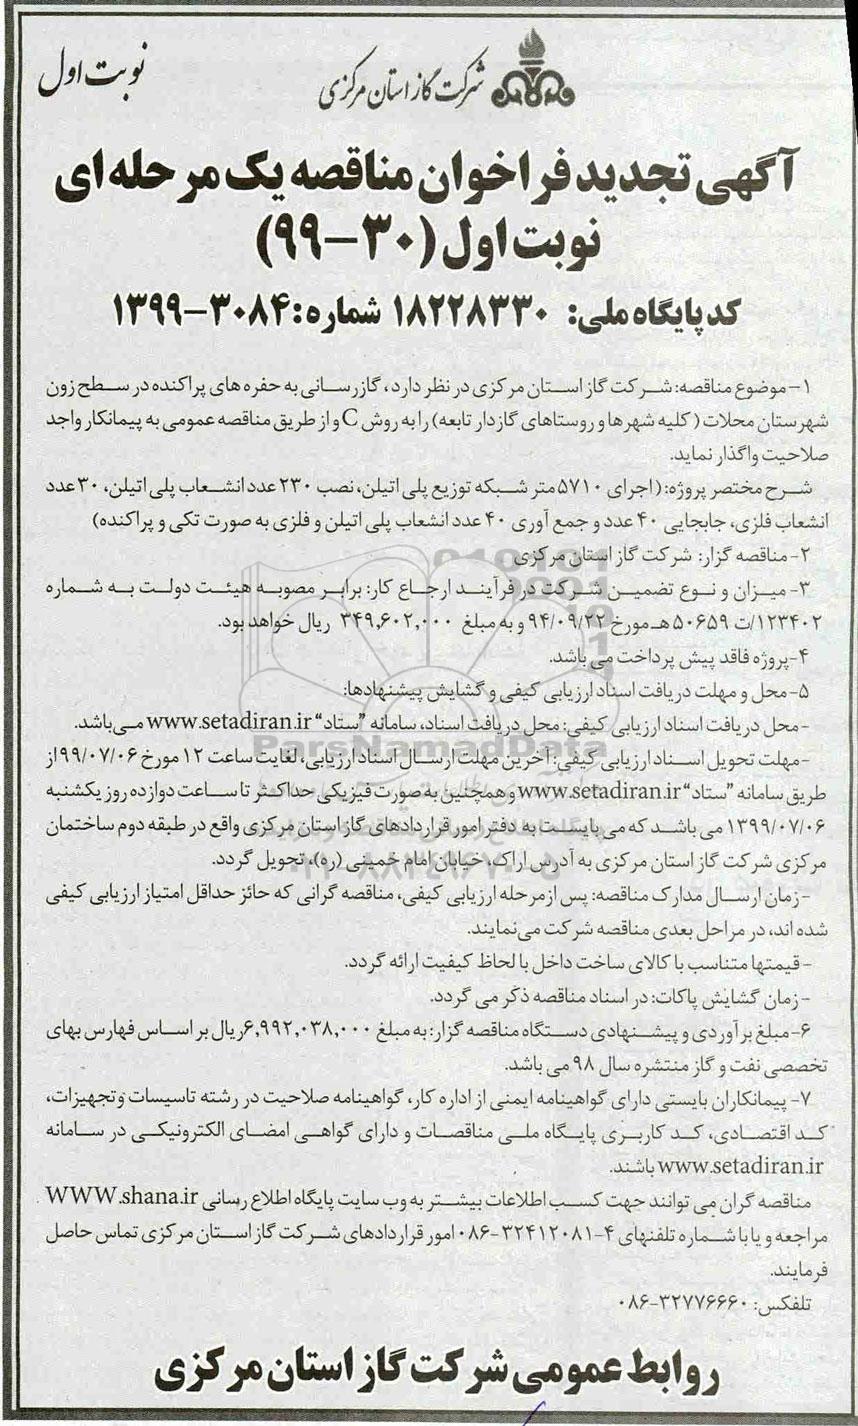 نوبت اول
شرکت گاز استان مرکزی
آگهی تجدید فراخوان مناقصه یک مرحله ای
نوبت اول (۳۰-۹۹)
کد پایگاه ملی: ۱۸۲۲۸۳۳۰ شماره: ۳۰۸۴-۱۳۹۹
۱- موضوع مناقصه: شرکت گاز استان مرکزی در نظر دارد، گازرسانی به حفره های پراکنده در سطح زون
شهرستان محلات ( کلیه شهرها و روستاهای گازدار تابعه) را به روش C و از طریق مناقصه عمومی به پیمانکار واجد
صلاحیت واگذار نماید.
شرح مختصر پروژه: ( اجرای ۵۷۱۰ متر شبکه توزیع پلی اتیلن، نصب ۲۳۰ عدد انشعاب پلی اتیلن، ۳۰ عدد
انشعاب فلزی، جابجایی ۴۰ عدد و جمع آوری ۴۰ عدد انشعاب پلی اتیلن و فلزی به صورت تکی و پراکنده)
۲- مناقصه گزار: شرکت گاز استان مرکزی
۳- میزان و نوع تضمین شرکت در فرآیند ارجاع کار: برابر مصوبه هیئت دولت به شماره
۱۲۳۴۰۲/ت ۵۰۶۵۹ هـ مورخ ۹۴/۰۹/۲۲ و به مبلغ ۳۴۹,۶۰۲,۰۰۰ ریال خواهد بود.
۴- پروژه فاقد پیش پرداخت می باشد.
۵- محل و مهلت دریافت اسناد ارزیابی کیفی و گشایش پیشنهادها:
- محل دریافت اسناد ارزیابی کیفی: محل دریافت اسناد، سامانه "ستاد" www.setadiran.ir می‌باشد.
- مهلت تحویل اسناد ارزیابی کیفی: آخرین مهلت ارسال اسناد ارزیابی، لغایت ساعت ۱۲ مورخ ۹۹/۰۷/۰۶ از
طریق سامانه "ستاد" www.setadiran.ir و همچنین به صورت فیزیکی حداکثر تا ساعت دوازده روز یکشنبه
۱۳۹۹/۰۷/۰۶ می باشد که می بایست به دفتر امور قراردادهای گاز استان مرکزی واقع در طبقه دوم ساختمان
مرکزی شرکت گاز استان مرکزی به آدرس اراک، خیابان امام خمینی (ره)، تحویل گردد.
- زمان ارسال مدارک مناقصه: پس از مرحله ارزیابی کیفی، مناقصه گرانی که حائز حداقل امتیاز ارزیابی کیفی
شده اند، در مراحل بعدی مناقصه شرکت می‌نمایند.
- قیمتها متناسب با کالای ساخت داخل با لحاظ کیفیت ارائه گردد.
- زمان گشایش پاکات: در اسناد مناقصه ذکر می گردد.
۶- مبلغ برآوردی و پیشنهادی دستگاه مناقصه گزار: به مبلغ ۶,۹۹۲,۰۳۸,۰۰۰ ریال بر اساس فهارس بهای
تخصصی نفت و گاز منتشره سال ۹۸ می باشد.
۷- پیمانکاران بایستی دارای گواهینامه ایمنی از اداره کار، گواهینامه صلاحیت در رشته تاسیسات و تجهیزات،
کد اقتصادی، کد کاربری پایگاه ملی مناقصات و دارای گواهی امضای الکترونیکی در سامانه
www.setadiran.ir باشند.
مناقصه گران می توانند جهت کسب اطلاعات بیشتر به وب سایت پایگاه اطلاع رسانی WWW.shana.ir
مراجعه و یا با شماره تلفنهای ۴-۳۲۴۱۲۰۸۱-۰۸۶ امور قراردادهای شرکت گاز استان مرکزی تماس حاصل
فرمایند.
تلفکس: ۳۲۷۷۶۶۶۰-۰۸۶
روابط عمومی شرکت گاز استان مرکزی
ParsNamadData